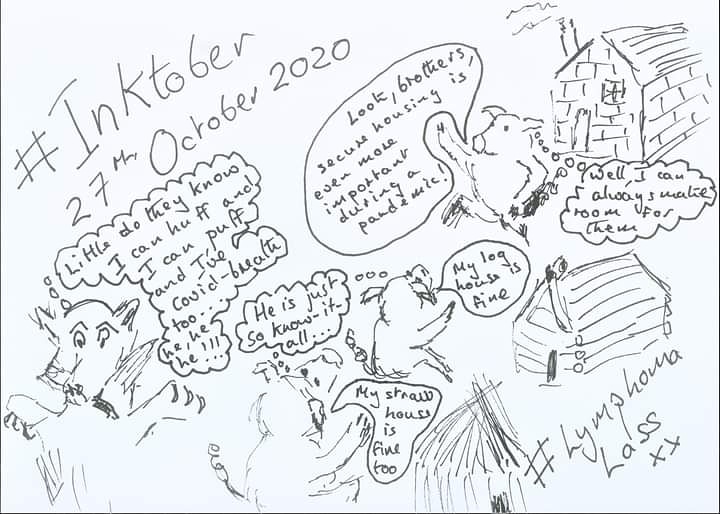 #Inktober
27th October 2020
Look, brothers,
secure housing is
even more
important
during a
pandemic!
Well, I can
always make
room for
them
Little do they know
I can huff and
I can puff
and I've
Covid-breath
too...
he, he,
he!!!
My log
house is
fine
He is just
so know-it-
all...
My straw
house
is
fine
too
#Lymphoma
Lass
xx